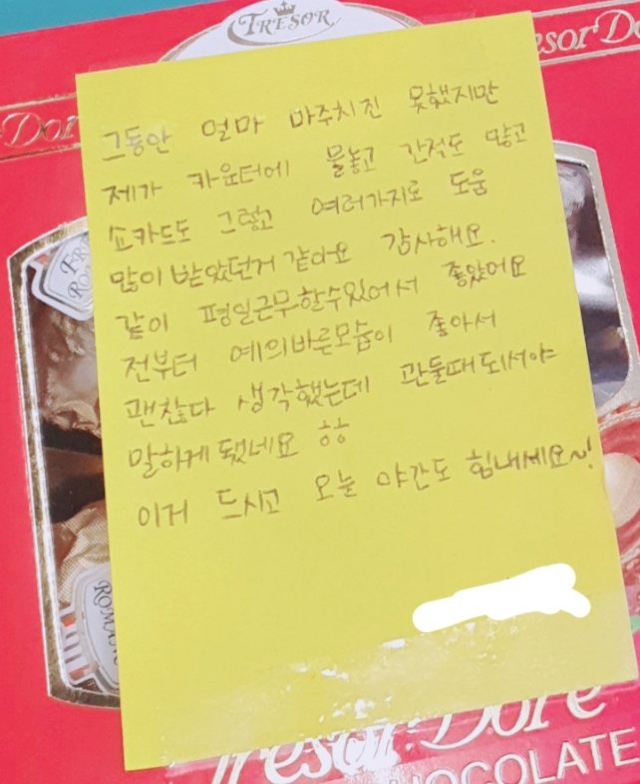 TRESOR
esor Do
Dor
그동안 얼마 마주치진 못했지만
제가 카운터에 물놓고 간적도 많고
쇼카드도 그렇고 여러가지로 도움
많이 받았던거 같아요 감사해요.
같이 평일근무할수있어서 좋았어요
전부터 예의바른모습이 좋아서
괜찮다 생각했는데 관둘때되서야
말하게됐네요 ㅎㅎ
이거 드시고 오늘 야간도 힘내세요~!
Tresor Dore
CHOCOLATE